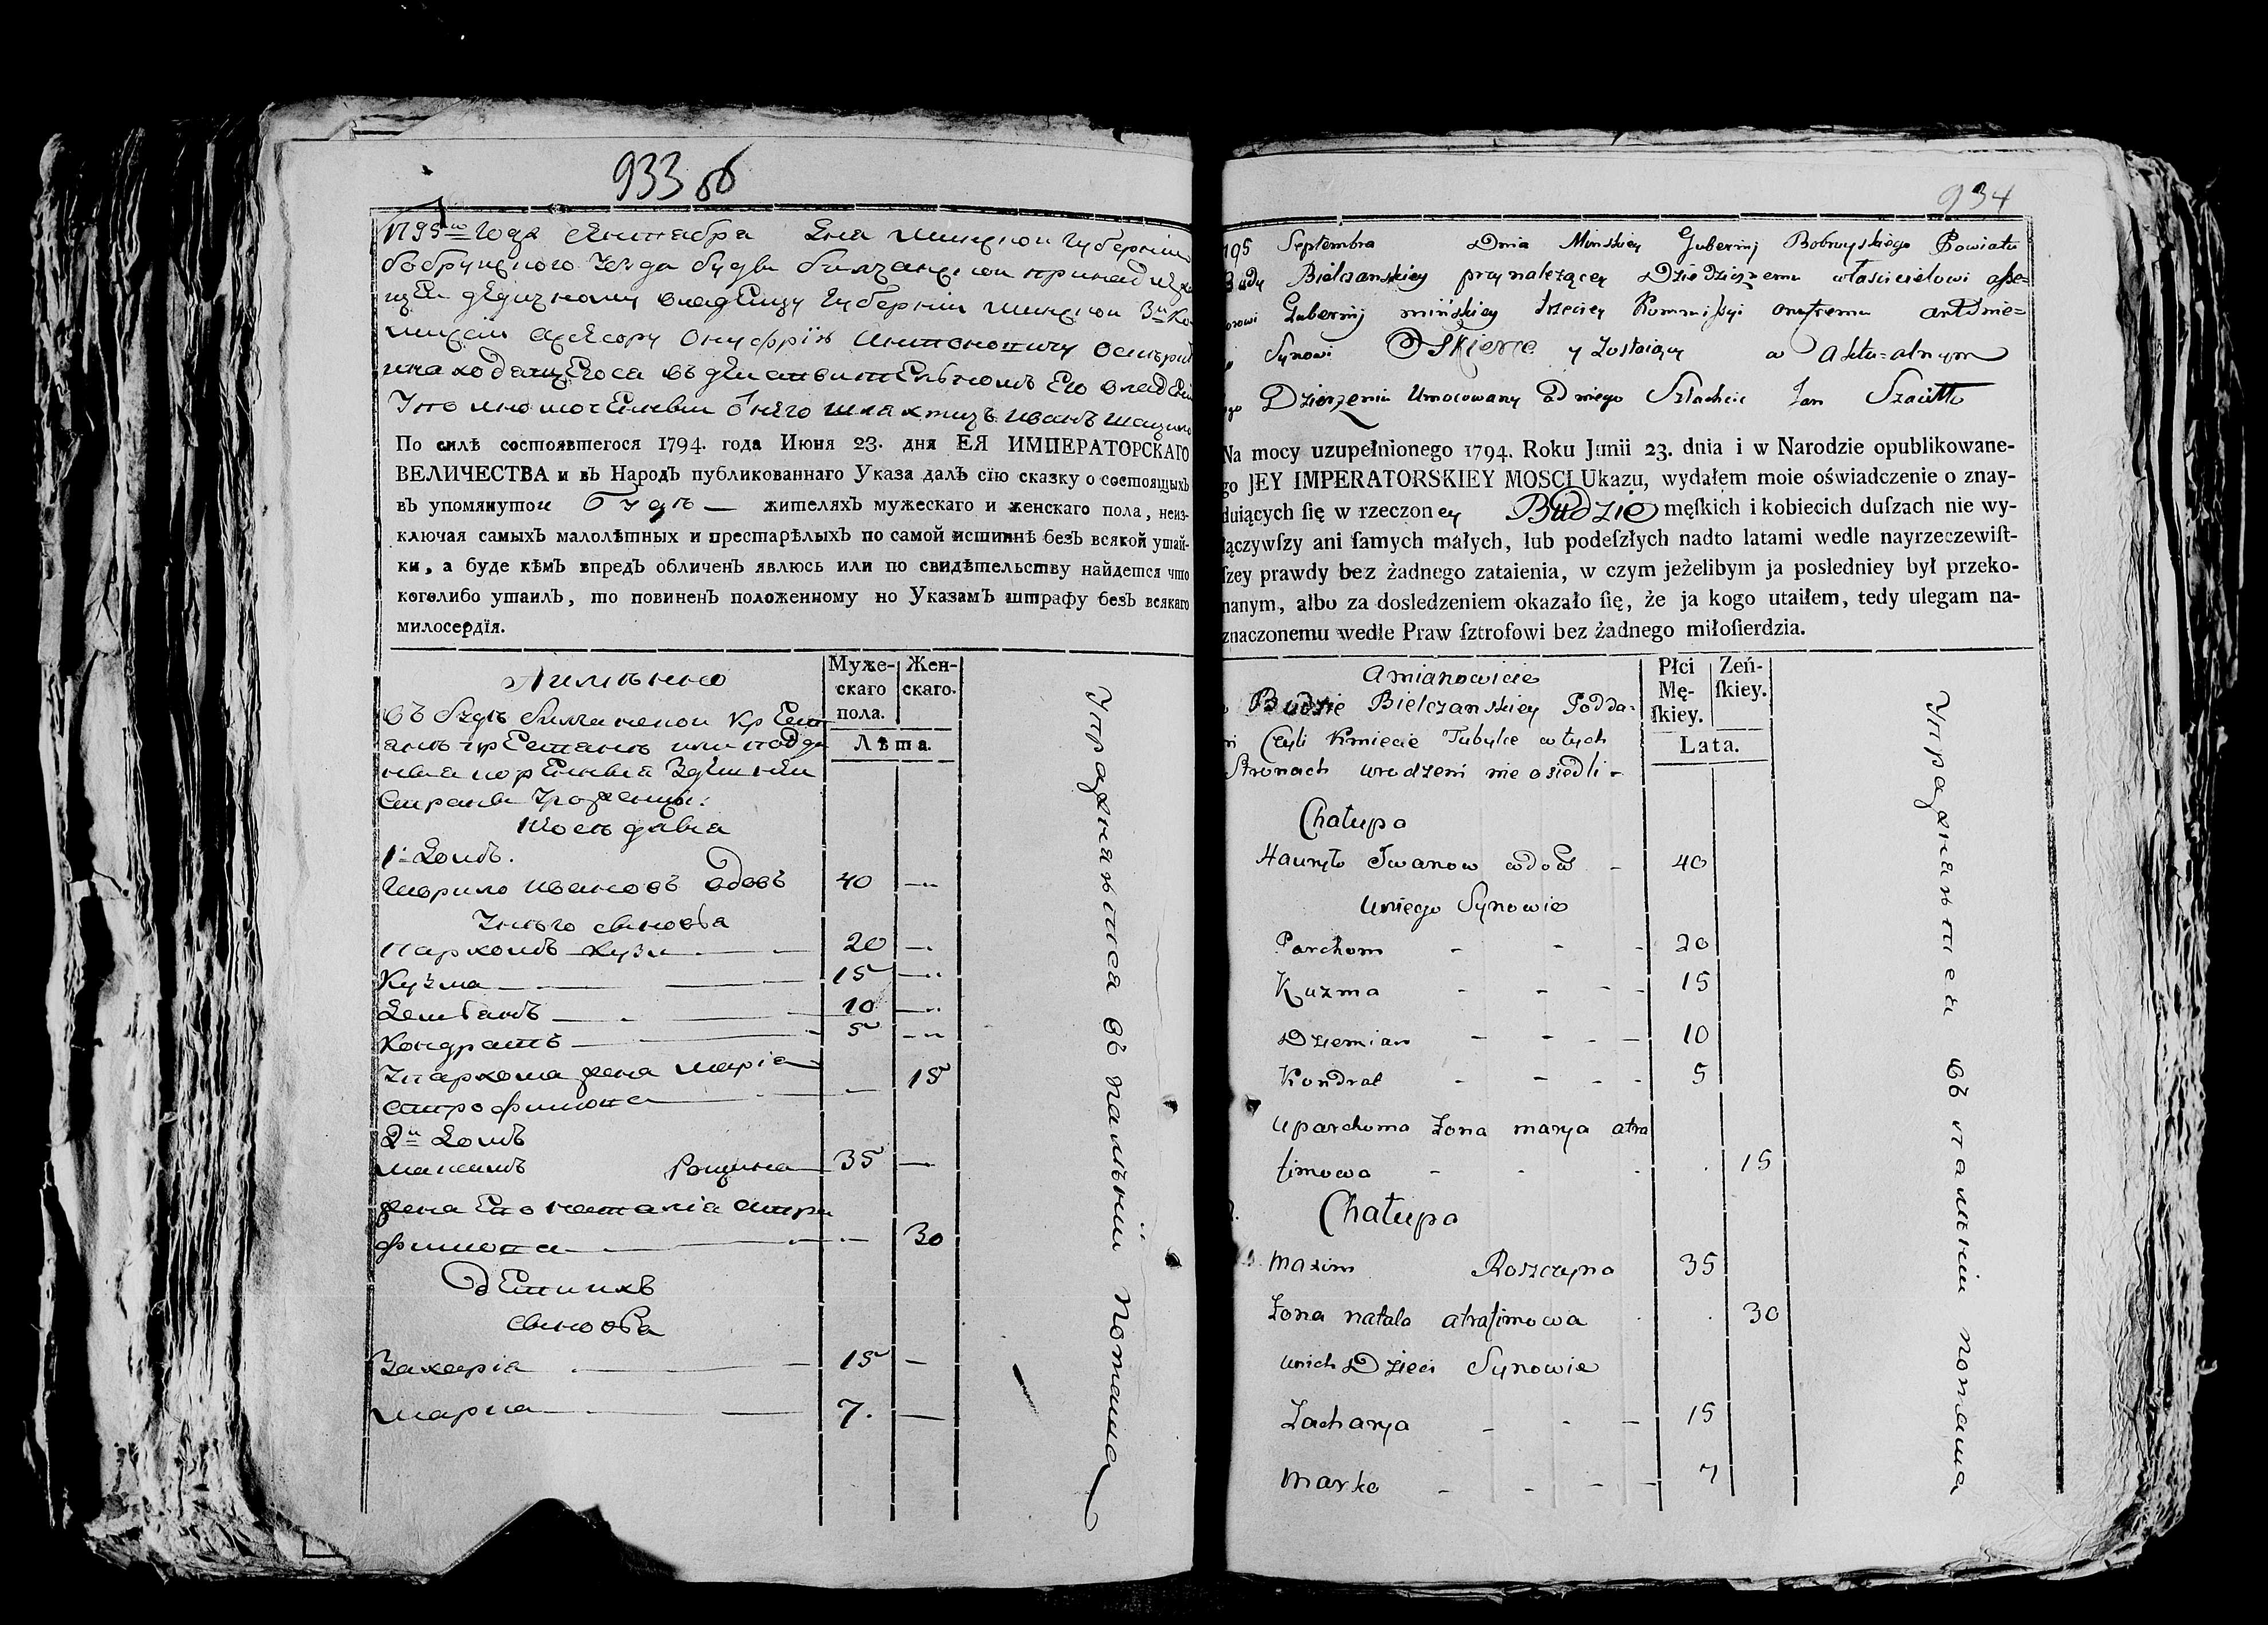 933 об
1795го года Сентября Дня Минской Губернии
бобруйского уезда будви билчанской принадлежа
щей дедичному владельцу Губернии Минской 3й Ко
мисии асесору Онуфрію Антоновичу Оскерке
и находящегося въ действительномъ его владении
уполномоченный от него шляхтичъ Иванъ Шацило
По силѣ состоявшегося 1794. года Июня 23. дня ЕЯ ИМПЕРАТОРСКАГО
ВЕЛИЧЕСТВА и въ НародЪ публикованнаго Указа далЪ сїю сказку о состоящыхЪ
въ упомянутой Будѣ — жителяхЪ мужескаго и женскаго пола, неиз-
ключая самыхЪ малолѣтныхЪ и престарѣлыхЪ по самой истиннѣ безЪ всякой утай-
ки, а буде кѣмЪ впредЪ обличенЪ явлюсь или по свидѣтельству найдется что
коголибо утаилЪ, то повиненЪ положенному по УказамЪ штрафу безЪ всякаго
милосердїя.
Аимѣнно
Муже-
скаго
пола.
Жен-
скаго.
Лѣта.
въ будѣ билчанской крести
анѣ крестянѣ или подда
ныя коренныя здешней
Страны урожанцы:
1й Домъ.
Гаврило Ивановъ вдовъ 40 —
У него сынова
Пархомъ Кузм — 20 —
Кузма — 15 —
Демьянъ — 10 —
Кондратъ — 5 —
У пархома жена Марія
атрофимова — 15
2й Домъ
Максимъ Рощина 35 —
жена Его наталіа атра
фимова — 30
детиихъ
сынова
Захарія — 15 —
Марка — 7. —
Упражнаится въ паханіи
934
795 Septembra Dnia Minskiey Gubernij Bobruyskiego Powiatu
Budy Bielczanskiey przynależącey Dziedzicznemu właścicielowi asse=
sorowi Gubernij mińskiey trzeciey Kommissyi onufremu antonie=
Synowi Oskierce y zostaiącey w aktu=alnym
ego Dzierzeniu Umocowany od niego Szlachcic Jan Szacitto
Na mocy uzupełnionego 1794. Roku Junii 23. dnia i w Narodzie opublikowane-
go JEY IMPERATORSKIEY MOSCI Ukazu, wydałem moie oświadczenie o znay-
duiących ſię w rzeczoney Budzie męſkich i kobiecich duſzach nie wy-
łączywſzy ani ſamych małych, lub podeſzłych nadto latami wedle nayrzeczewiſt-
ſzey prawdy bez żadnego zataienia, w czym jeżelibym ja posledniey był przeko-
nanym, albo za dosledzeniem okazało ſię, że ja kogo utaiłem, tedy ulegam na-
znaczonemu wedle Praw ſztrofowi bez żadnego miłoſierdzia.
amianowicie
Płci
Mę-
ſkiey.
Zeń-
ſkiey.
Lata.
w Budzie Bielczanskiey Podda-
ni Czyli Kmiecie Tubylce w tych
Stronach urodzeni nie osiedli -
Chałupa
Hauryło Iwanow wdow - 40
Uniego Synowie
Parchom - - - 20
Kuzma - - - - 15
Dziemian - - - - 10
Kondrat - - - - 5
Uparchoma żona marya atra
fimowa - - - . 15
Chałupa
Maxim Roszczyna 35
żona natala atrafimowa . . 30
unich Dzieci Synowie
Zacharya - - - 15
Marko - - - - 7
Упражнаится въ паханіи